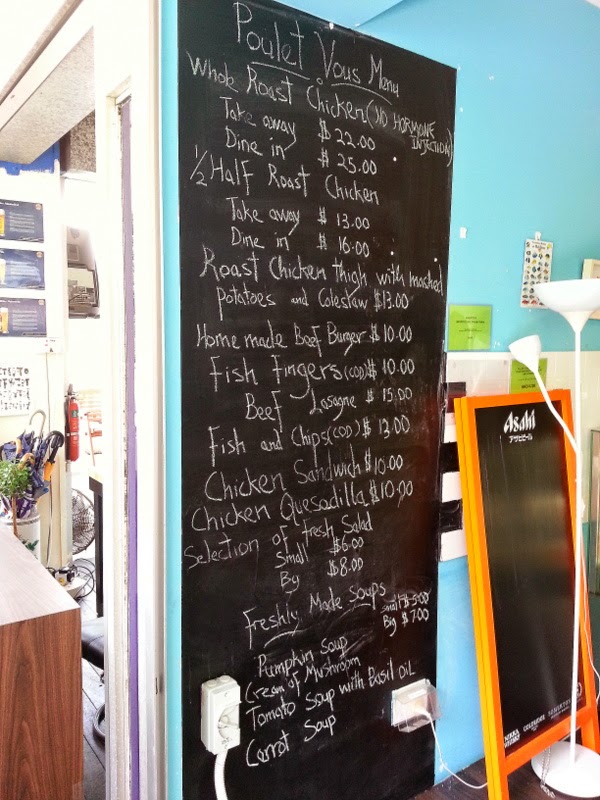 Poulet Vous Menu
Whole Roast Chicken (NO HORMONE
INJECTION)
Take away $22.00
Dine in $25.00
1/2 Half Roast Chicken
Take away $13.00
Dine in $16.00
Roast Chicken thigh with mashed
Potatoes and Coleslaw $13.00
Home made Beef Burger $10.00
Fish Fingers (COD) $10.00
Beef Lasagne $15.00
Fish and Chips (COD) $13.00
Chicken Sandwich $10.00
Chicken Quesadilla $10.00
Selection of fresh Salad
Small $6.00
By $8.00
Freshly Made Soups
Small $5.00
Big $7.00
Pumpkin Soup
Cream of Mushroom
Tomato Soup with Basil Oil
Carrot Soup
Asahi
アサヒビール